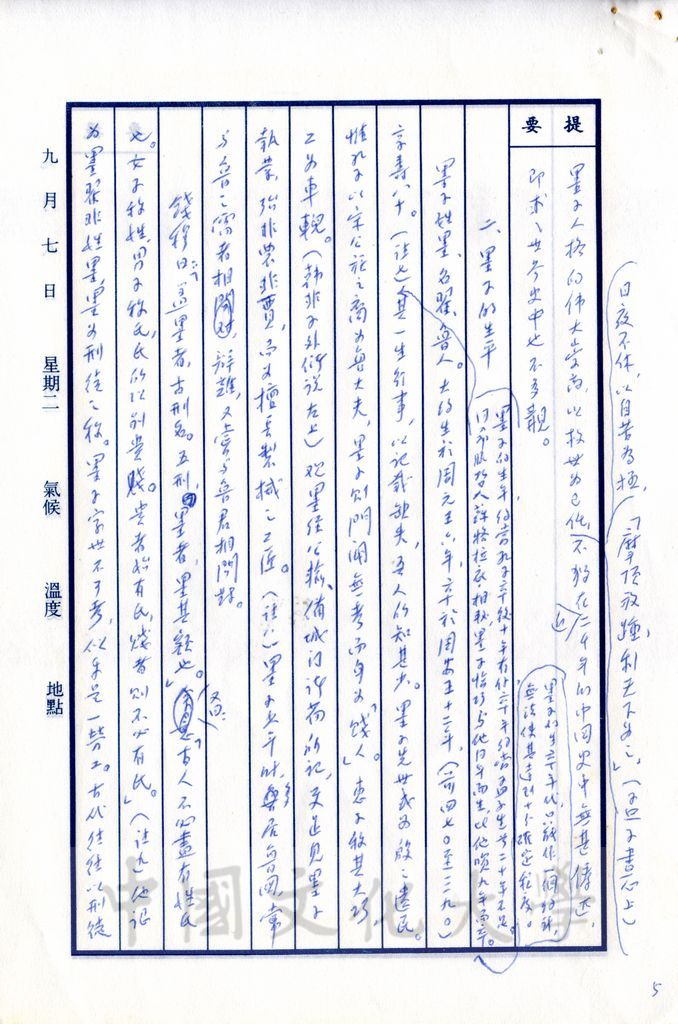 日夜不休，以自苦為極，「摩頂放踵，利天下為之。」（孟子盡心上）
提要
墨子人格的偉大崇高，以救世為己任，不獨在近二千年的中國史中無其儔匹，
墨子的生卒年代，只能作一個約計，無法使其達到十分確定程度。
即求之世界史中也不多覯。
二、墨子的生平
墨子的生年約當孔子卒後十年有 卒年約當孟子生前二十年不足。
日 希臘哲人蘇格拉底相 墨子恰巧與他同年而生比他晚九年而卒。
墨子姓墨，名翟，魯人。大約生於周元王六年，卒於周安王十二年，（前四七〇至三九〇）
享壽八十。（註七）其一生行事，以記載缺失，吾人所知甚少。墨子先世或為殷之遺民。
惟孔子以宋公族之裔為魯大夫，墨子則門閥無考而身為「賤人」。惠子稱其大巧
工為車輗。（韓非子外儲說左上）觀墨經公輸、備城門諸篇所記，更足見墨子
執業，殆非農非賈，而為擅長製械之工匠。（註八）墨子生平時，多居魯國，常
與魯之儒者相問對，辯難，又嘗與魯君相問對。
錢穆曰：「墨者，古刑名。五刑，墨者，墨其額也。」又曰：「古人不必盡有姓氏
也。女子稱姓，男子稱氏，氏所以別貴賤。貴者始有氏，賤者則不必有氏。」（註九）他認
為墨翟非姓墨，墨為刑徒之稱。墨子家世不可考，似乎是一勞工。古代往往以刑徒
九月七日 星期二 氣候 溫度 地點
中國文化大學
5